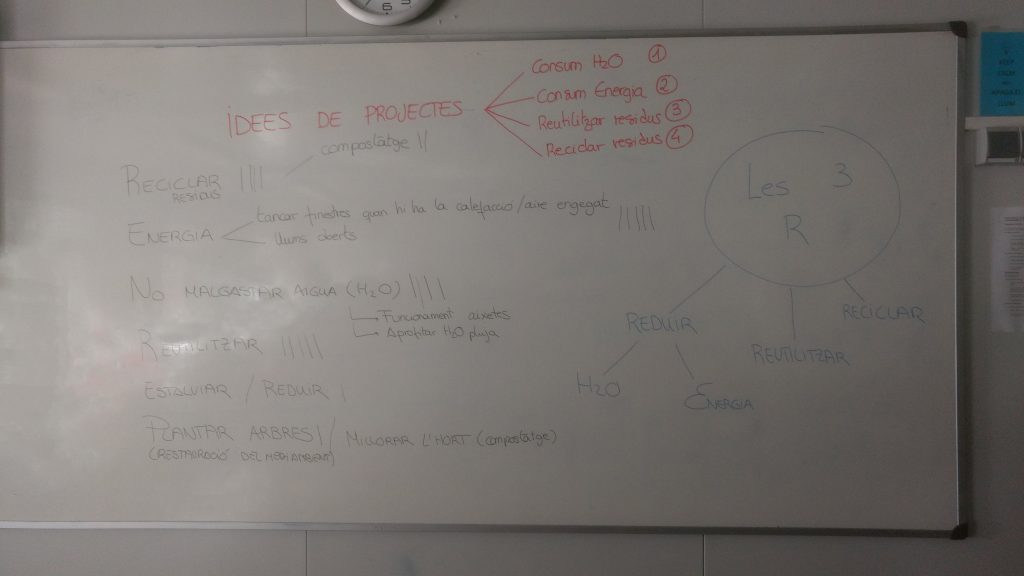 IDEES DE PROJECTES
Consum H2O 1
Consum Energia 2
Reutilitzar residus 3
Reciclar residus 4
RECICLAR ||||
RESIDUS
compostatge ||
ENERGIA
tancar finestres quan hi ha la calefacció/aire engegat
llums oberts
|||||
NO MALGASTAR AIGUA (H2O) ||||
Funcionament aixetes
Aprofitar H2O pluja
REUTILITZAR |||||
ESTALVIAR / REDUIR |
PLANTAR ARBRES | / MILLORAR L'HORT (compostatge)
(RESTAURACIÓ DEL MEDI AMBIENT)
Les 3
R
REDUIR
REUTILITZAR
RECICLAR
H2O
ENERGIA
KEEP
CALM